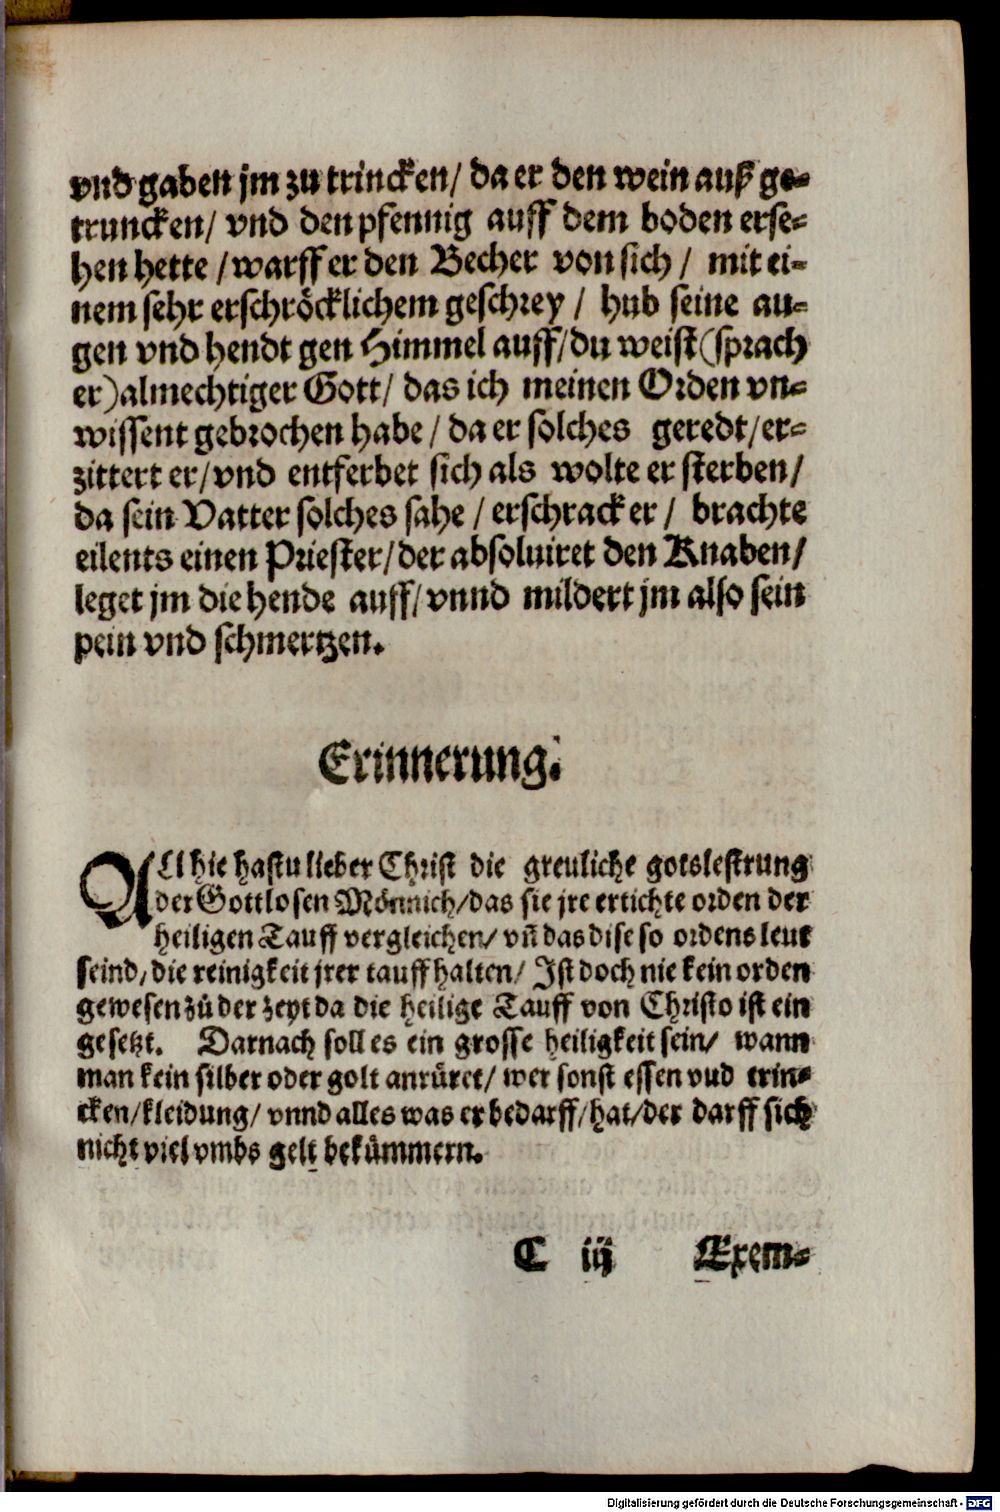 vnd gaben jm zu trincken/ da er den wein auß ge-
truncken/ vnd den pfennig auff dem boden erse-
hen hette / warff er den Becher von sich / mit ei-
nem sehr erschröcklichem geschrey / hub seine au-
gen vnd hendt gen Himmel auff/ du weist (sprach
er) almechtiger Gott/ das ich meinen Orden vn-
wissent gebrochen habe / da er solches geredt/ er-
zittert er/ vnd entferbet sich als wolte er sterben/
da sein Vatter solches sahe / erschrack er / brachte
eilents einen Priester/ der absoluiret den Knaben/
leget jm die hende auff/ vnnd mildert jm also sein
pein vnd schmertzen.
Erinnerung.
ALlhie hastu lieber Christ die greuliche gotslestrung
der Gottlosen Mönnich/ das sie jre ertichte orden der
heiligen Tauff vergleichen/ vñ das dise so ordens leut
seind/ die reinigkeit jrer tauff halten/ Ist doch nie kein orden
gewesen zů der zeyt da die heilige Tauff von Christo ist ein
gesetzt. Darnach soll es ein grosse heiligkeit sein/ wann
man kein silber oder golt anrüret/ wer sonst essen vud trin-
cken/ kleidung/ vnnd alles was er bedarff/ hat/ der darff sich
nicht viel vmbs gelt bekümmern.
C iij Exem-
Digitalisierung gefördert durch die Deutsche Forschungsgemeinschaft - DFG